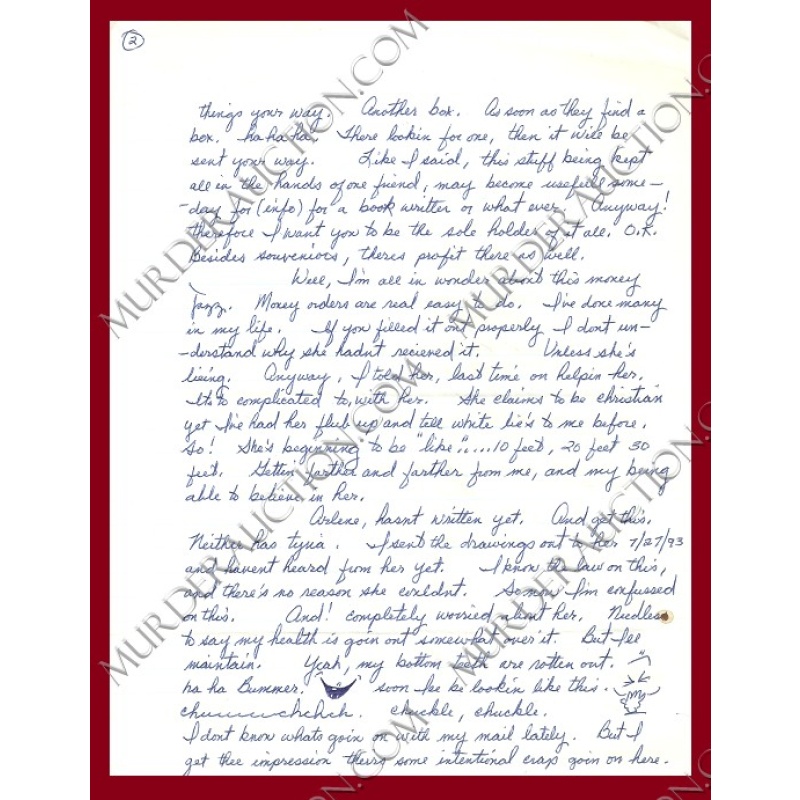 2
things your way. Another box. As soon as they find a
box. ha ha ha! There lookin for one, then it will be
sent your way. Like I said, this stuff being kept
all in the hands of one friend, may become usefull some-
-day for (info) for a book writter or what ever. Anyway!
therefore I want you to be the sole holder of it all. O.K.
Besides souveniors, theres profit there as well.
Well, I'm all in wonder about this money
jazz. Money orders are real easy to do. I've done many
in my life. If you filled it out properly I dont un-
-derstand why she hadnt recieved it. Unless she's
lieing. Anyway, I told her, last time on helpin her.
Its to complicated to, with her. She claims to be "christian"
yet I've had her flub up and tell white lie's to me before.
So! She's beginning to be "like"....10 feet, 20 feet 30
feet. Gettin farther and farther from me, and my being
able to believe in her.
Arlene, hasnt written yet. And get this.
Neither has tyria. I sent the drawings out to her 7/27/93
and havent heard from her yet. I know the law on this,
and there's no reason she couldnt. So now I'm confussed
on this. And! completely worried about her. Needless
to say my health is goin out somewhat over it. But I'ee
maintain. Yeah, my bottom teeth are rotten out.
ha ha Bummer. soon I'ee be lookin like this.
chuuuuuchchch. chuckle, chuckle.
I dont know whats goin on with my mail lately. But I
get thee impression theirs some intentional crap goin on here.
MURDERAUCTION.COM